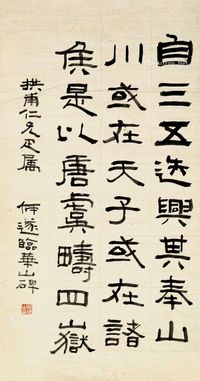 自三五迭興其奉山
川或在天子或在諸
矦是以唐虞疇四嶽
拱甫仁兄疋属
何遂臨華山碑